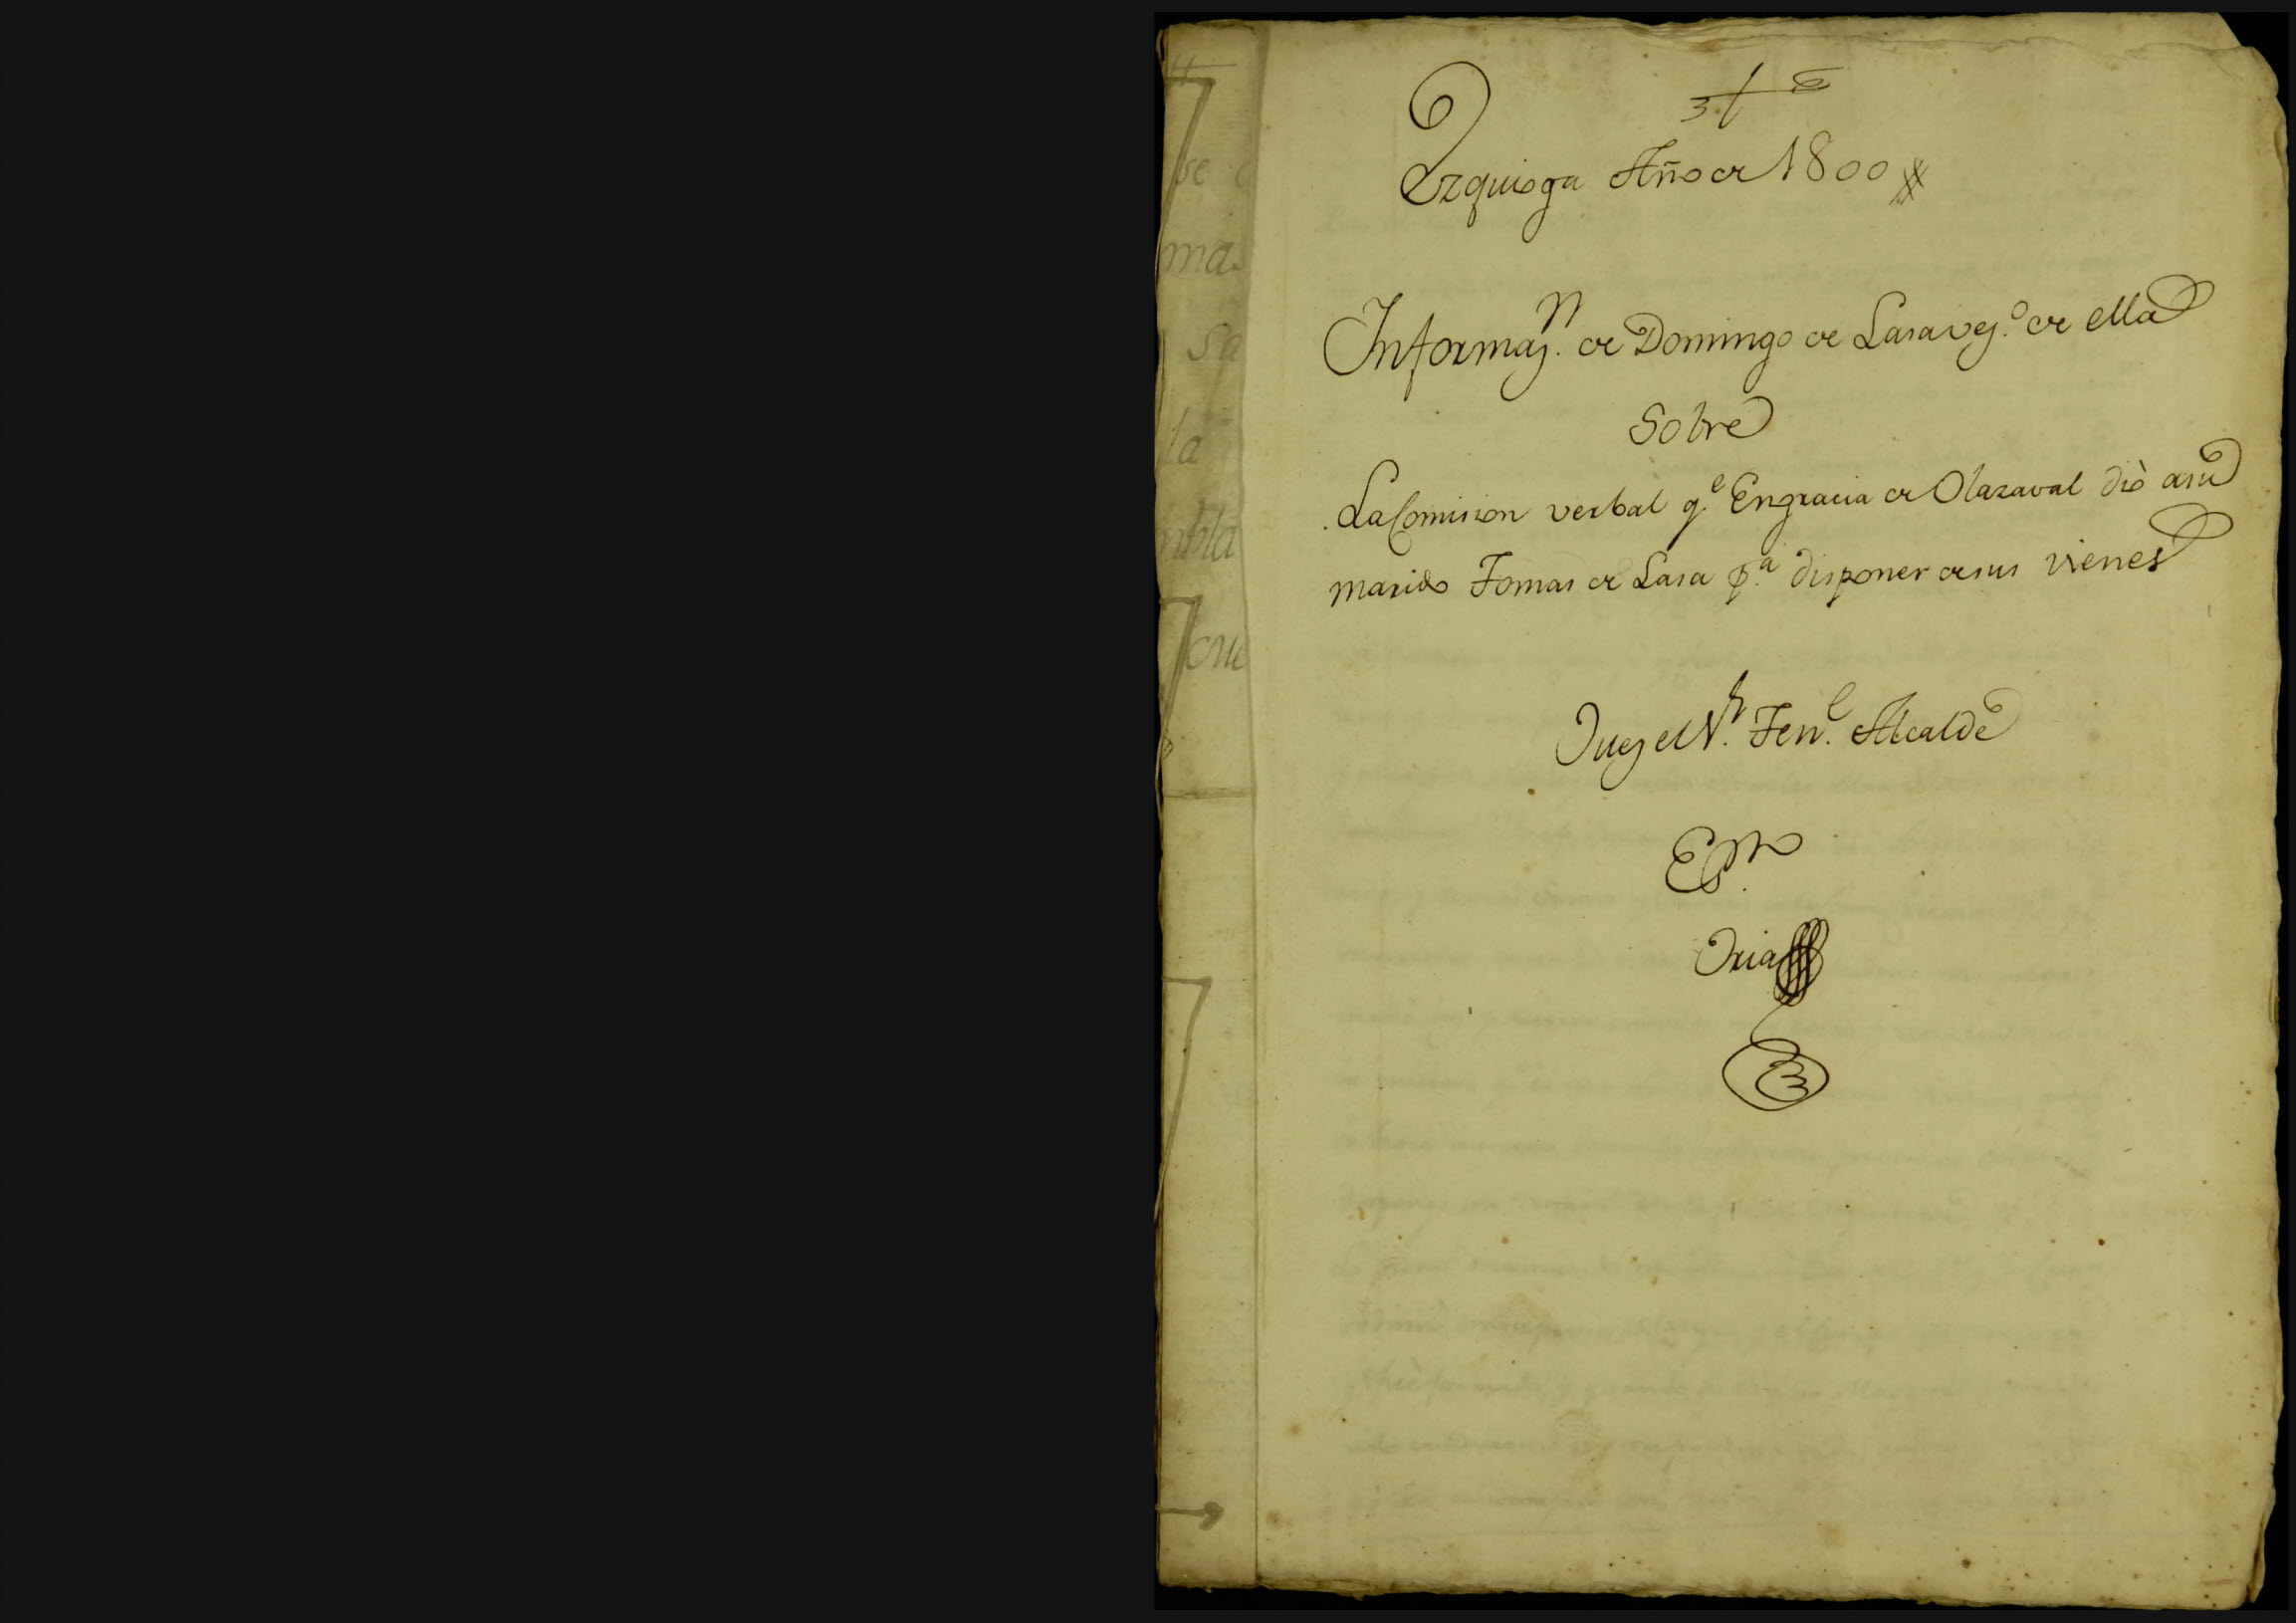 Ezquioga Año de 1800
Informaz.n de Domingo de Lasa vez.o de ella
Sobre
La Comision verbal q.e Engracia de Olazaval diò asu
marido Tomas de Lasa p.a disponer desus vienes
Juez el S.r Ten.e Alcalde
Ess.no
Oria
se
ma
sa
la